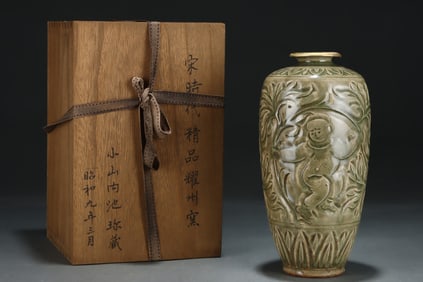 宋時代精品耀州窯
小山內池珍藏
昭和九年三月